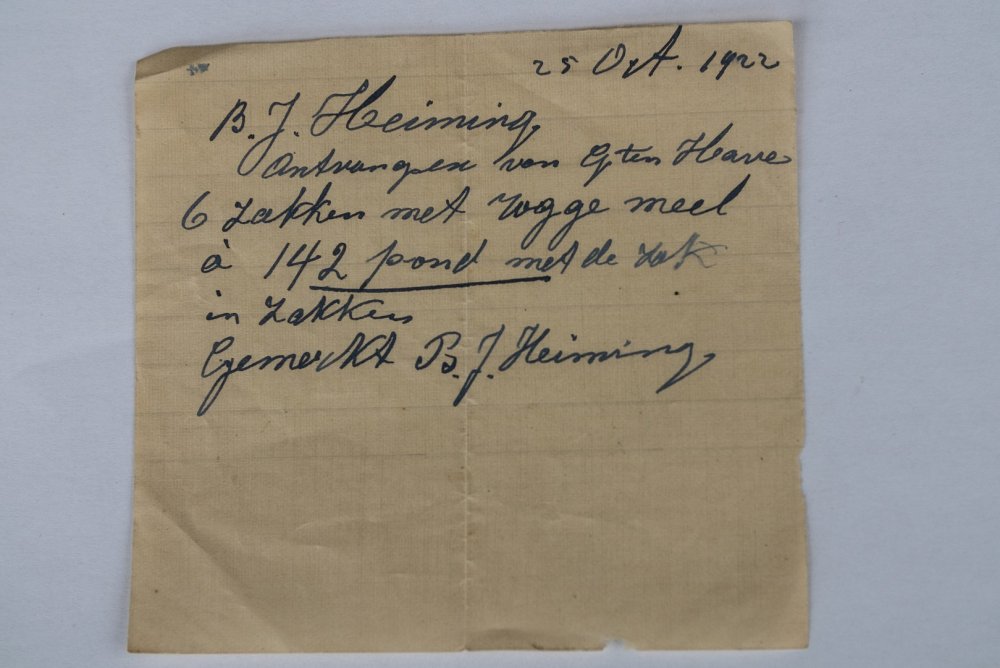 25 Oct. 1922
B. J. Heiming
Ontvangen van G ten Have
6 Zakken met rogge meel
à 142 pond met de zak
in Zakken
Gemerkt B. J. Heiming